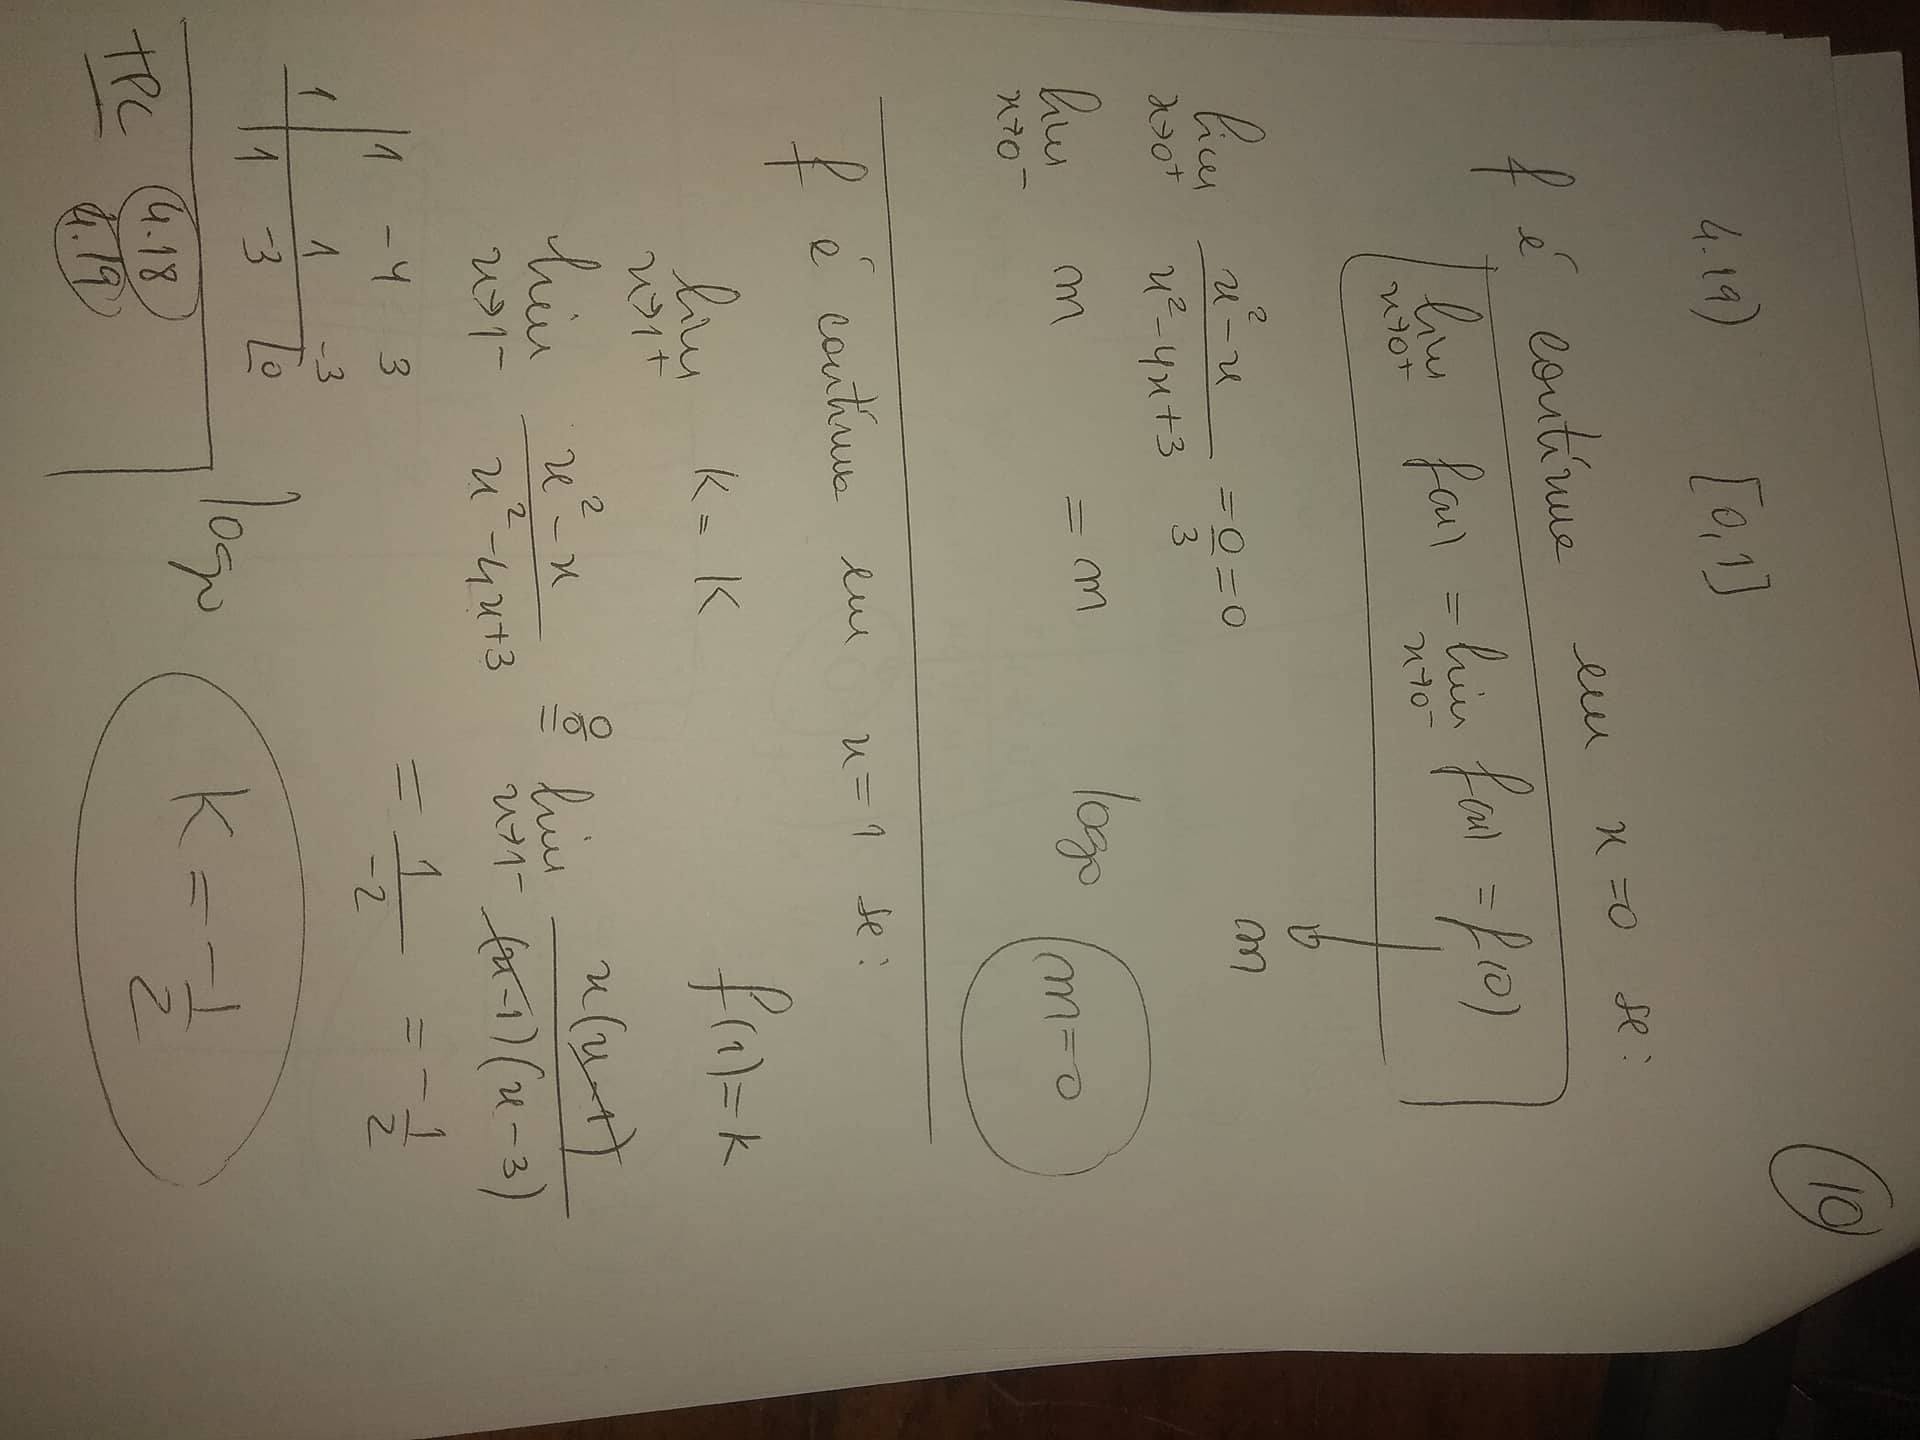 10
4.19) [0,1]
f é contínua em x=0 se:
lim x→0+ f(x) = lim x→0- f(x) = f(0)
m
lim x→0+ (x²-x)/(x²-4x+3) = 0/3 = 0
lim x→0- m = m logo m=0
f é contínua em x=1 se:
lim x→1+ K = K f(1)=K
lim x→1- (x²-x)/(x²-4x+3) =(0/0) lim x→1- x(x-1)/((x-1)(x-3))
= 1/-2 = -1/2
1 -4 3
1 1 -3
1 -3 0
logo K = -1/2
TPC 4.18
4.19